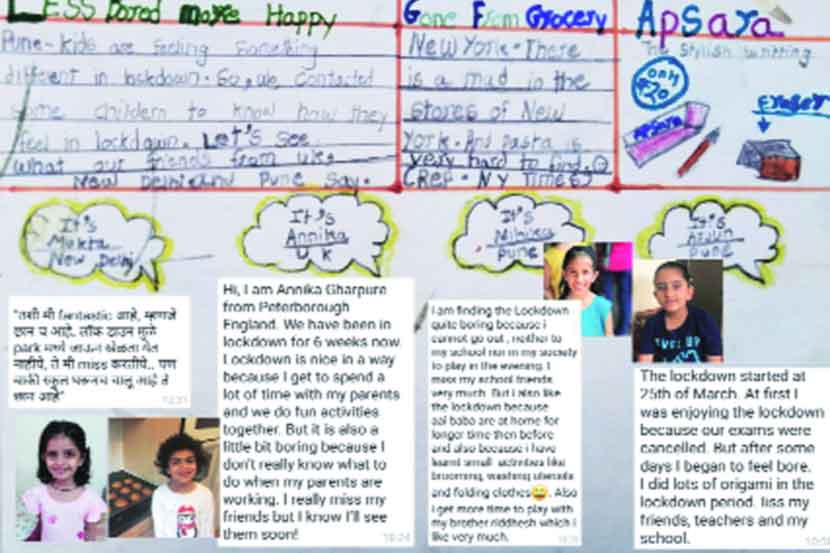 LESS Bored more Happy
Pune - kids are feeling something
different in lockdown. So, we contacted
some childern to know how they
feel in lockdown. Let's see
what our friends from UK,
New Delhi and Pune say.
Gone From Grocery
New York - There
is a mad in the
stores of New
York. And pasta is
very hard to find.
(Rep - NY Times)
Apsara
The stylish writing
only
₹20
APSARA
Eraser
It's
Mukta
New Delhi
It's
Annika
UK
It's
Niharika
Pune
It's
Arjun
Pune
"तशी मी fantastic आहे, म्हणजे
छान च आहे. लॉक डाउन मुळे
park मध्ये जाऊन खेळता येत
नाहीये, ते मी miss करतीये.. पण
बाकी स्कूल घरूनच चालू आहे ते
छान आहे"
Hi, I am Annika Gharpure
from Peterborough
England. We have been in
lockdown for 6 weeks now.
Lockdown is nice in a way
because I get to spend a
lot of time with my parents
and we do fun activities
together. But it is also a
little bit boring because I
don't really know what to
do when my parents are
working. I really miss my
friends but I know I'll see
them soon!
I am finding the Lockdown
quite boring because i
cannot go out , neither to
my school nor in my society
to play in the evening. I
miss my school friends
very much. But i also like
the lockdown because
aai baba are at home for
longer time then before
and also because i have
learnt small activities like
brooming, washing utensils
and folding clothes😅. Also
i get more time to play with
my brother riddhesh which i
like very much.
The lockdown started at
25th of March. At first I
was enjoying the lockdown
because our exams were
cancelled. But after some
days I began to feel bore.
I did lots of origami in the
lockdown period. Iiss my
friends, teachers and my
school.